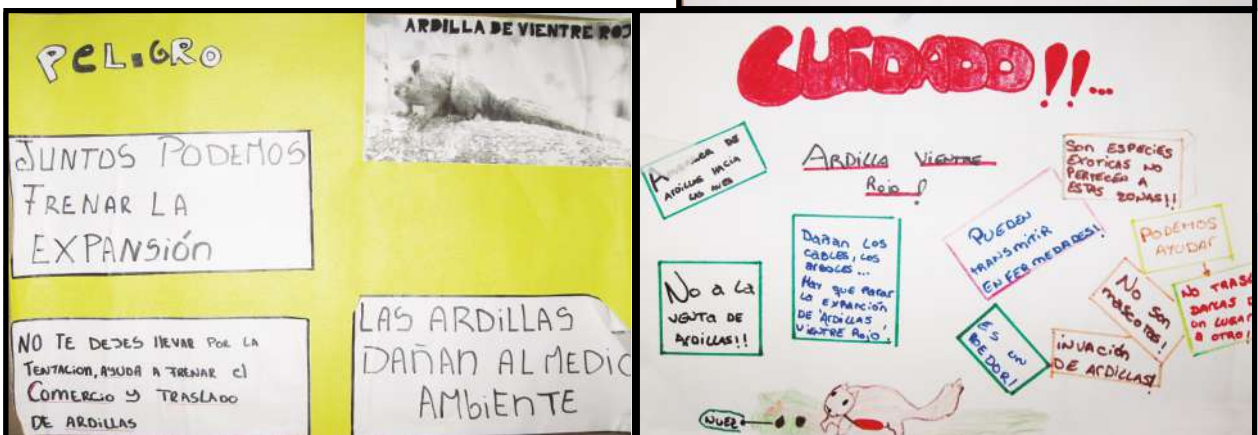 PELIGRO
ARDILLA DE VIENTRE ROJ
JUNTOS PODEMOS
FRENAR LA
EXPANSIÓN
NO TE DEJES LLEVAR POR LA
TENTACION, AYUDA A FRENAR el
COMERCIO Y TRASLADO
DE ARDILLAS
LAS ARDILLAS
DAÑAN AL MEDIO
AMBIENTE
CUIDADO!!...
DE
ARDILLAS HACIA
LAS AVES
ARDILLA VIENTRE
ROJO!
SON ESPECIES
EXOTICAS NO
PERTECEN A
ESTAS ZONAS!!
No a la
VENTA DE
ARDILLAS!!
Dañan LOS
CABLES, LOS
ARBOLES...
Hay que PARAR
LA EXPANCIÓN
DE ARDILLAS
VIENTRE ROJO!
PUEDEN
TRANSMITIR
ENFERMEDADES!
PODEMOS
AYUDAR
No SON
MASCOTAS!
NO TRAS
DARLAS D
UN LUGAR
A OTRO!
ES UN
ROEDOR!
INVACIÓN
DE ARDILLAS!
NUEZ